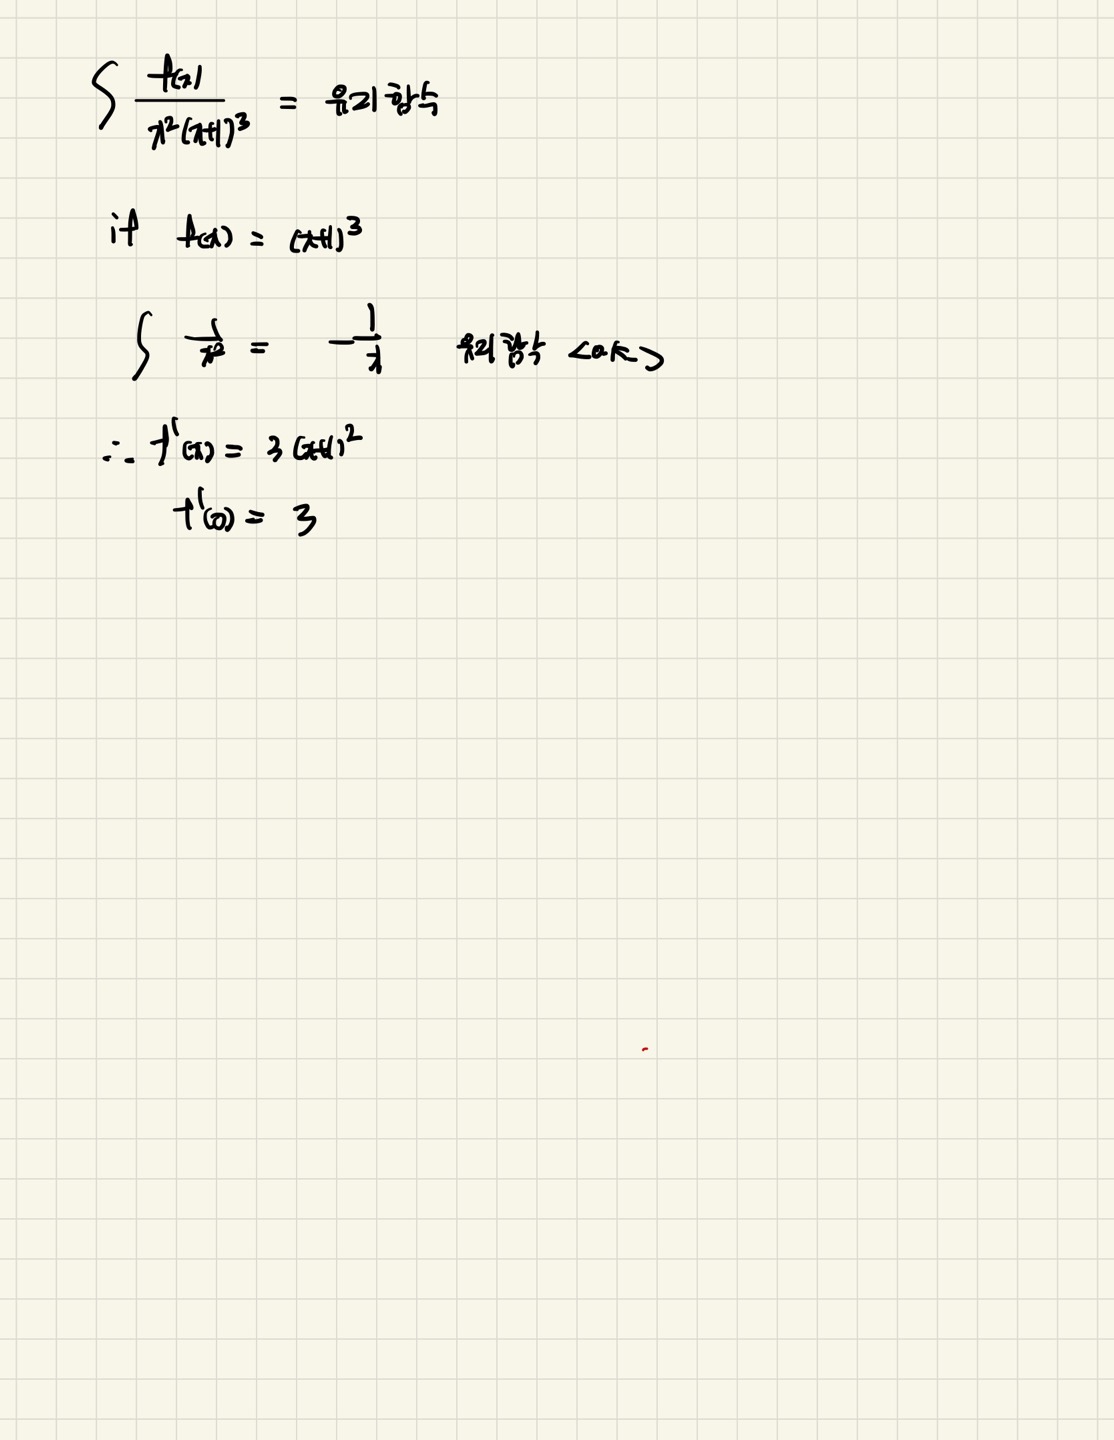 ∫ f(x) / x²(x+1)³ = 유리함수
if f(x) = (x+1)³
∫ 1/x² = -1/x 유리함수 <OK>
∴ f'(x) = 3(x+1)²
f'(0) = 3